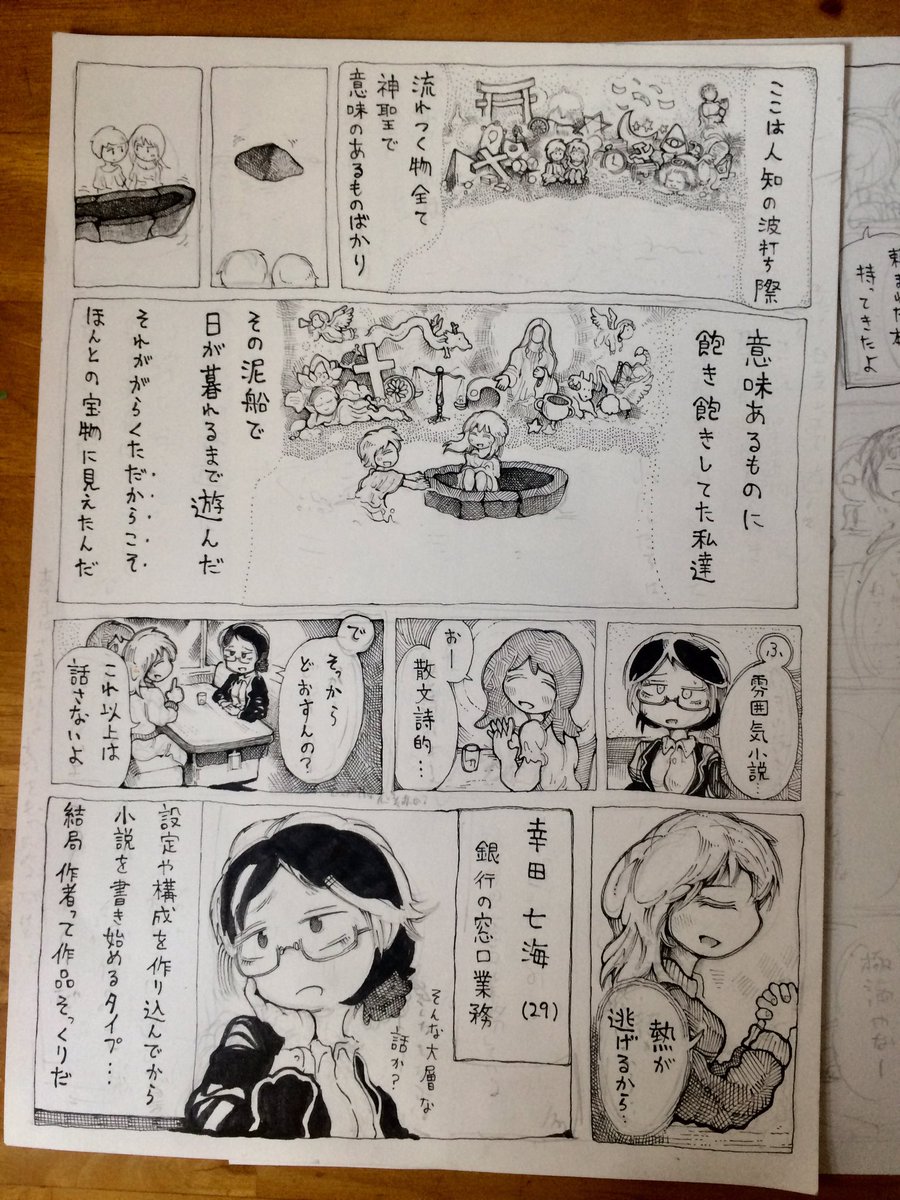 ここは人知の波打ち際
流れつく物全て
神聖で
意味のあるものばかり
意味あるものに
飽き飽きしてた私達
その泥船で
日が暮れるまで遊んだ
それががらくただからこそ
ほんとの宝物に見えたんだ
ふ、雰囲気小説…
おー
散文詩的…
で
そっから
どおすんの?
これ以上は
話さないよ
熱が
逃げるから…
幸田 七海(29)
銀行の窓口業務
そんな大層な
話か?
設定や構成を作り込んでから
小説を書き始めるタイプ…
結局 作者って作品そっくりだ
持ってきたよ